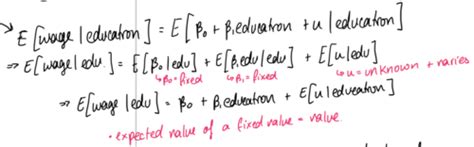 → E[wage|education] = E[β₀ + β₁education + u|education]
⇒ E[wage|edu] = E[β₀|edu] + E[β₁edu|edu] + E[u|edu]
↳β₀ = fixed ↳β₁ = fixed ↳u = unknown + varies
⇒ E[wage|edu] = β₀ + β₁education + E[u|education]
· expected value of a fixed value = value